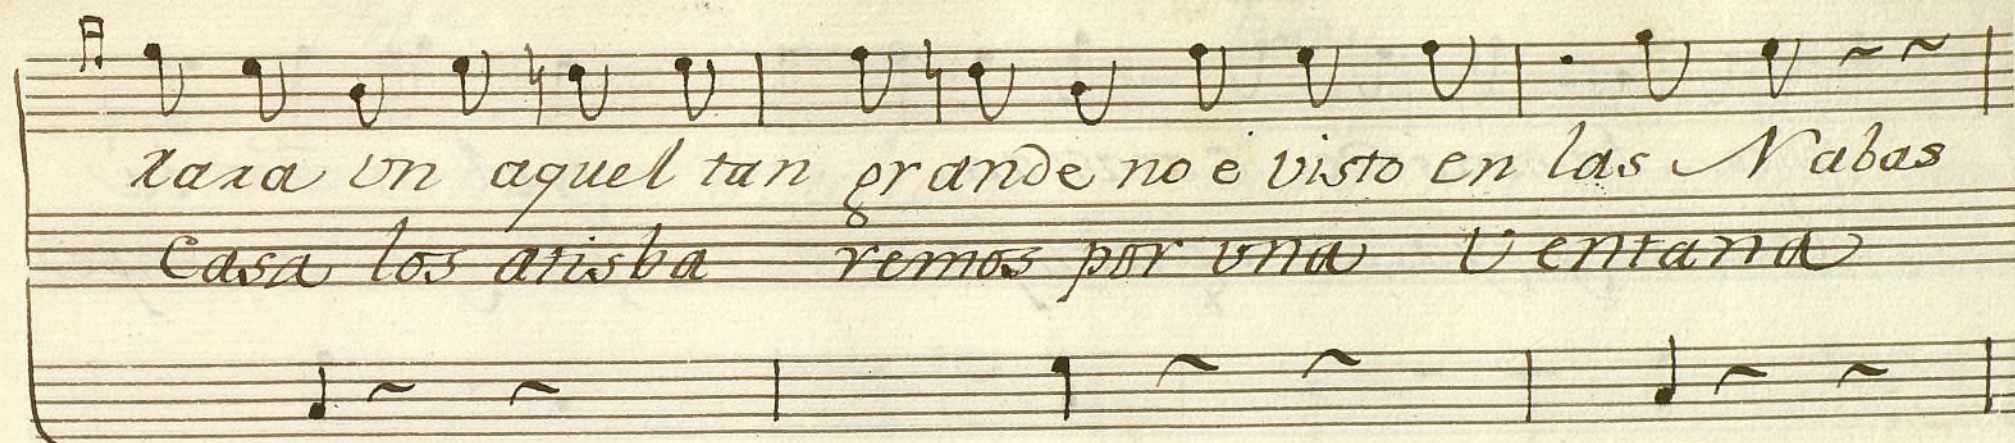 rara un aquel tan grande no e visto en las Nabas
Casa los atisba remos por una Ventana